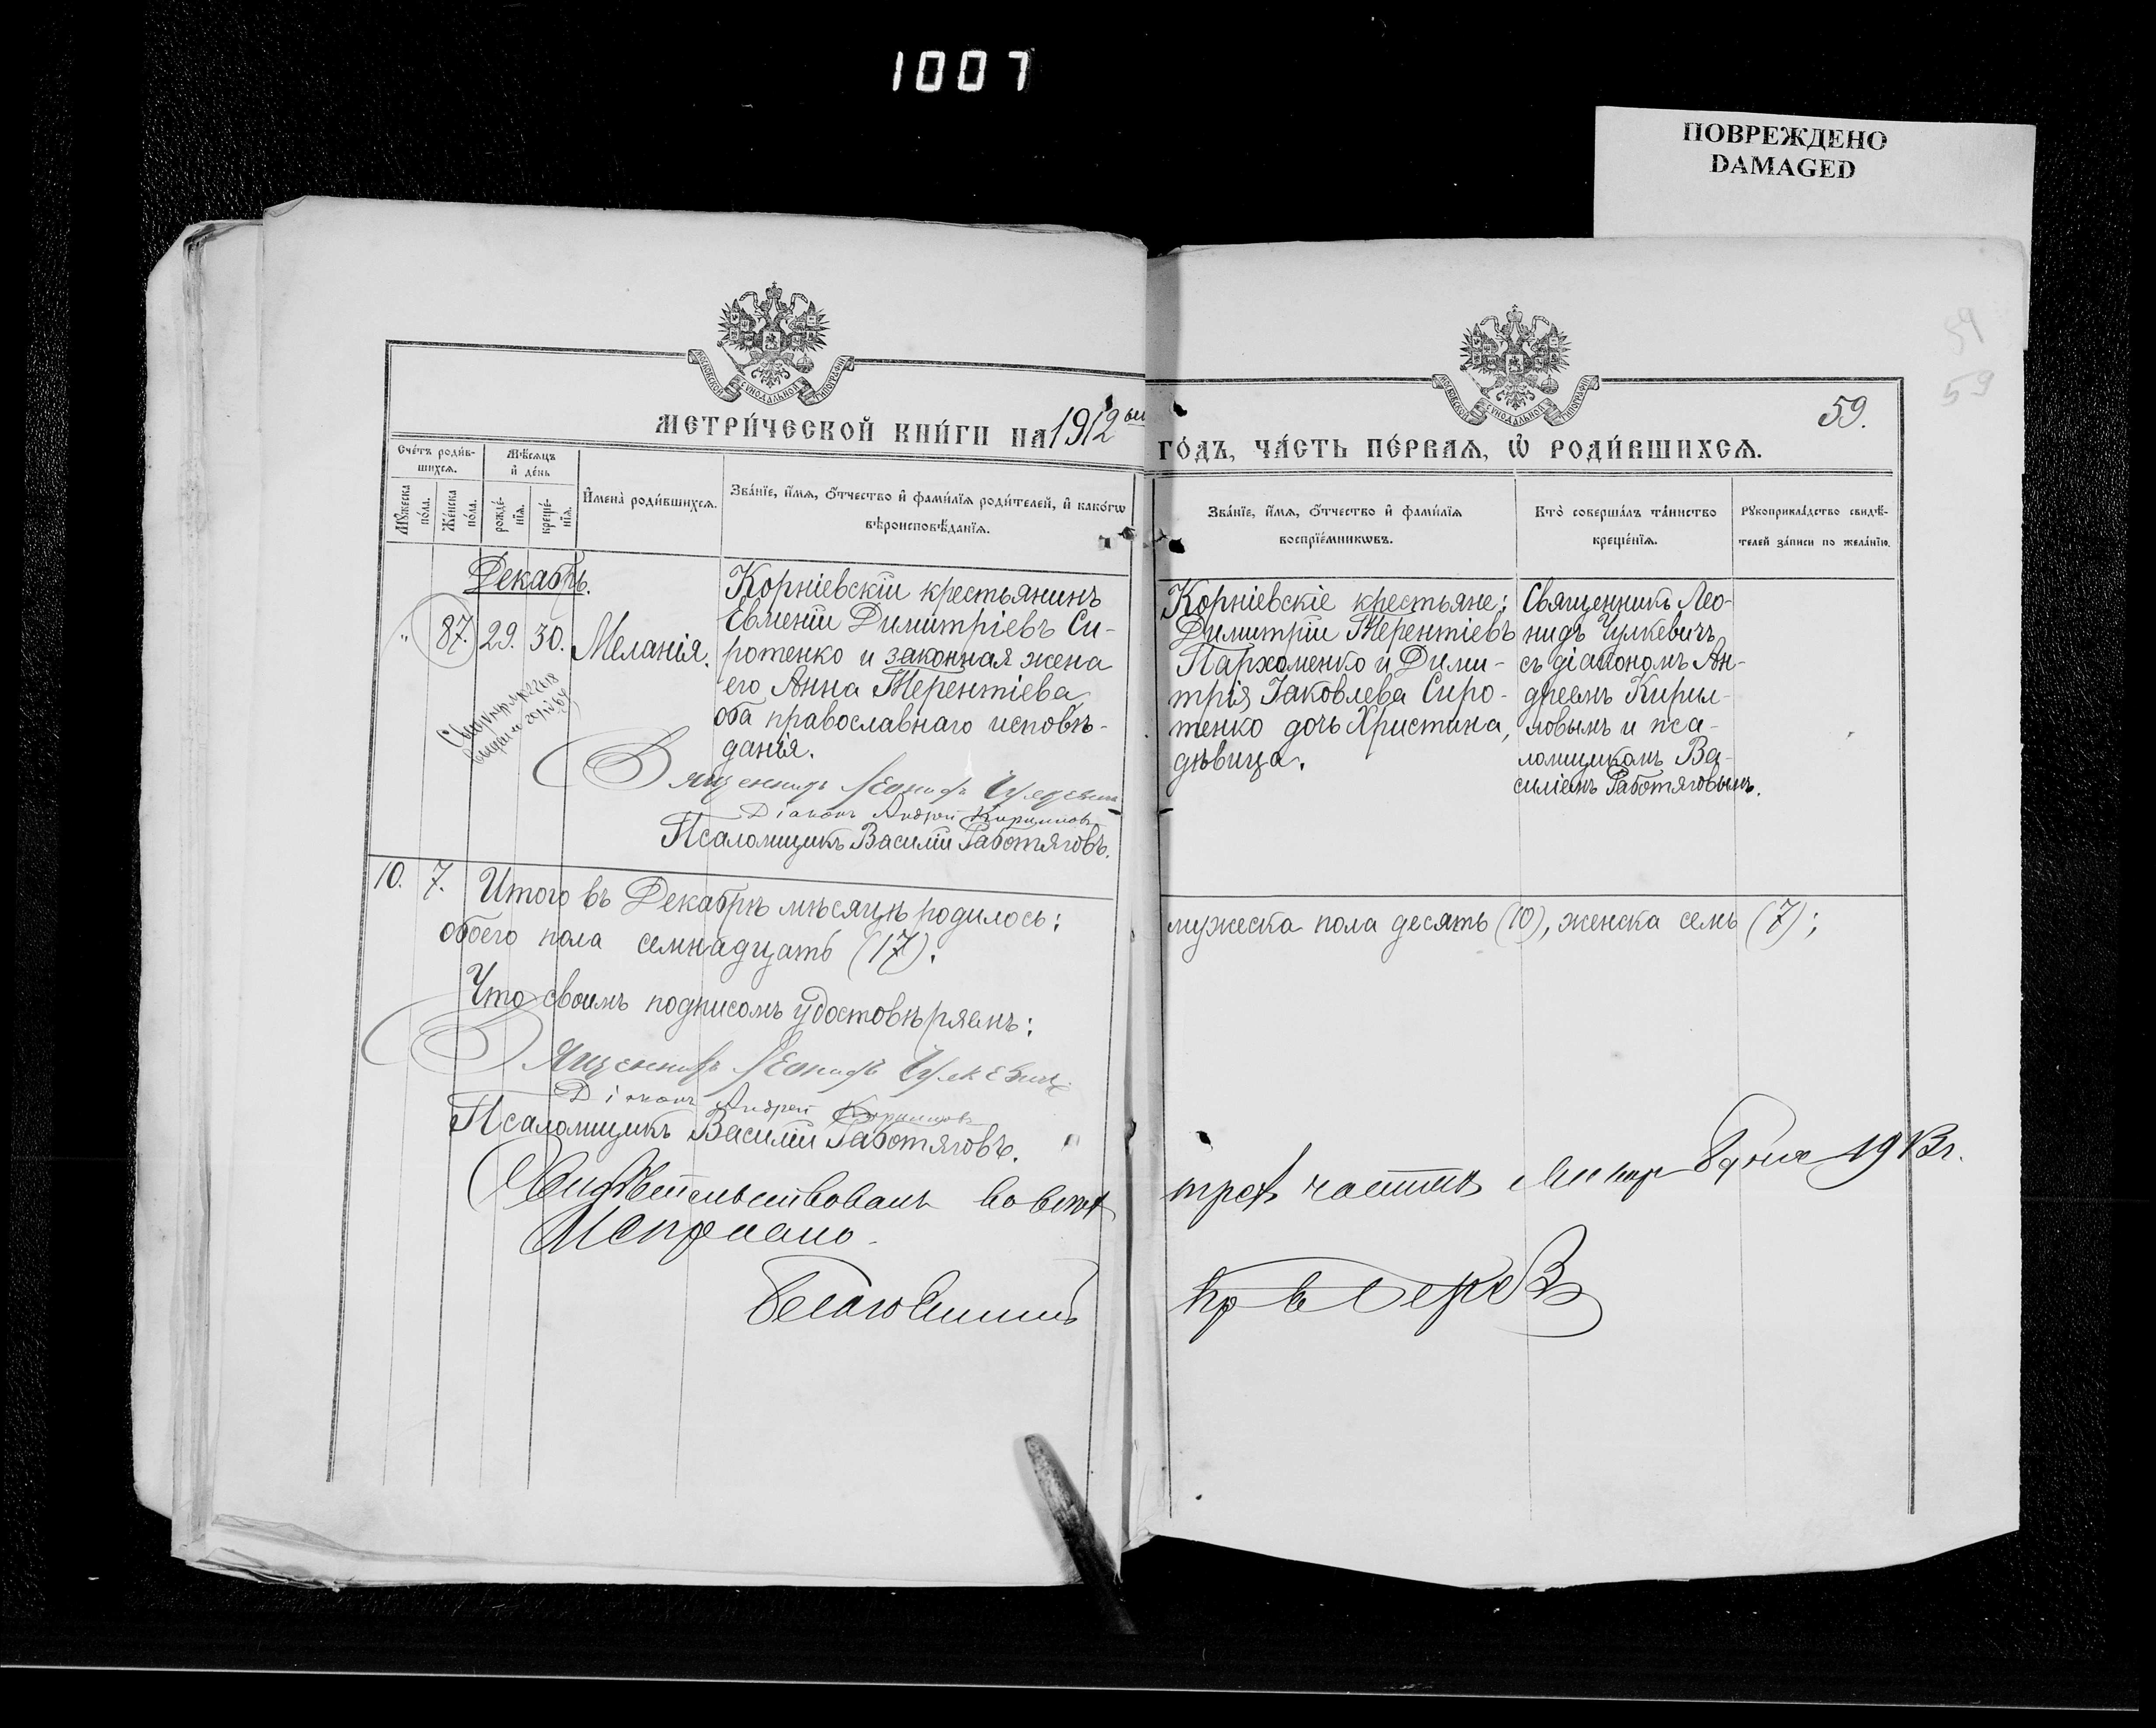 1007
ПОВРЕЖДЕНО
DAMAGED
59
59
МОСКОВСКОЙ СѴНОДАЛЬНОЙ ТИПОГРАФІИ
МОСКОВСКОЙ СѴНОДАЛЬНОЙ ТИПОГРАФІИ
59.
МЕТРИ́ЧЕСКОЙ КНИ́ГИ НА 1912 ый
ГО́ДЪ, ЧА́СТЬ ПЕ́РВАѦ, Ѡ҆ РОДИ́ВШИХСѦ.
Сче́тъ роди́в-
шихсѧ.
Мѣ́сѧцъ
и҆ де́нь
Мꙋ́жеска
по́ла.
Же́нска
по́ла.
рожде́-
нїѧ.
креще́-
нїѧ.
И҆мена̀ роди́вшихсѧ.
Зва́нїе, и҆́мѧ, ѻ҆́тчество и҆ фами́лїѧ роди́телей, и҆ како́гѡ
вѣроисповѣ́данїѧ.
Зва́нїе, и҆́мѧ, ѻ҆́тчество и҆ фами́лїѧ
воспрїе́мникѡвъ.
Кто̀ соверша́лъ та́инство
креще́нїѧ.
Рꙋкоприкла́дство свидѣ́-
телей за́писи по жела́нїю.
Декабрь.
" 87. 29. 30. Меланія.
Корніевскій крестьянинъ
Евменій Димитріевъ Си-
ротенко и законная жена
его Анна Терентіева
оба православнаго исповѣ-
данія.
Корніевскіе крестьяне:
Димитрій Терентіевъ
Пархоменко и Дими-
трія Іаковлева Сиро-
тенко дочь Христина,
дѣвица.
Священникъ Лео-
нидъ Чулкевичъ
съ діакономъ Ан-
дреемъ Кирил-
ловымъ и пса-
ломщикомъ Ва-
силіемъ Работяговымъ.
Священникъ Леонидъ Чулкевичъ
Діаконъ Андрей Кирилловъ
Псаломщикъ Василій Работяговъ.
10. 7. Итого въ Декабрѣ мѣсяцѣ родилось:
мужеска пола десять (10), женска семь (7);
обоего пола семнадцать (17).
Что своимъ подписомъ удостовѣряемъ:
Священникъ Леонидъ Чулкевичъ
Діаконъ Андрей Кирилловъ
Псаломщикъ Василій Работяговъ.
Свидѣтельствовалъ во всѣхъ
трехъ частяхъ 1913 г.
Исправно.
Благочинный